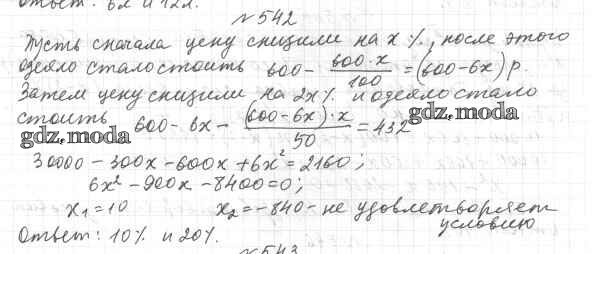 Ответ: 6л и 12л.
№542
Пусть сначала цену снизили на x %, после этого
одеяло стало стоить 600 - 600·x/100 = (600-6x) р.
Затем цену снизили на 2x% и одеяло стало
стоить 600 - 6x - (600-6x)·x/50 = 432
gdz.moda gdz.moda
30000 - 300x - 600x + 6x² = 2160;
6x² - 900x - 8400 = 0;
x₁ = 10 x₂ = -840 - не удовлетворяет
условию
Ответ: 10% и 20%.
№543